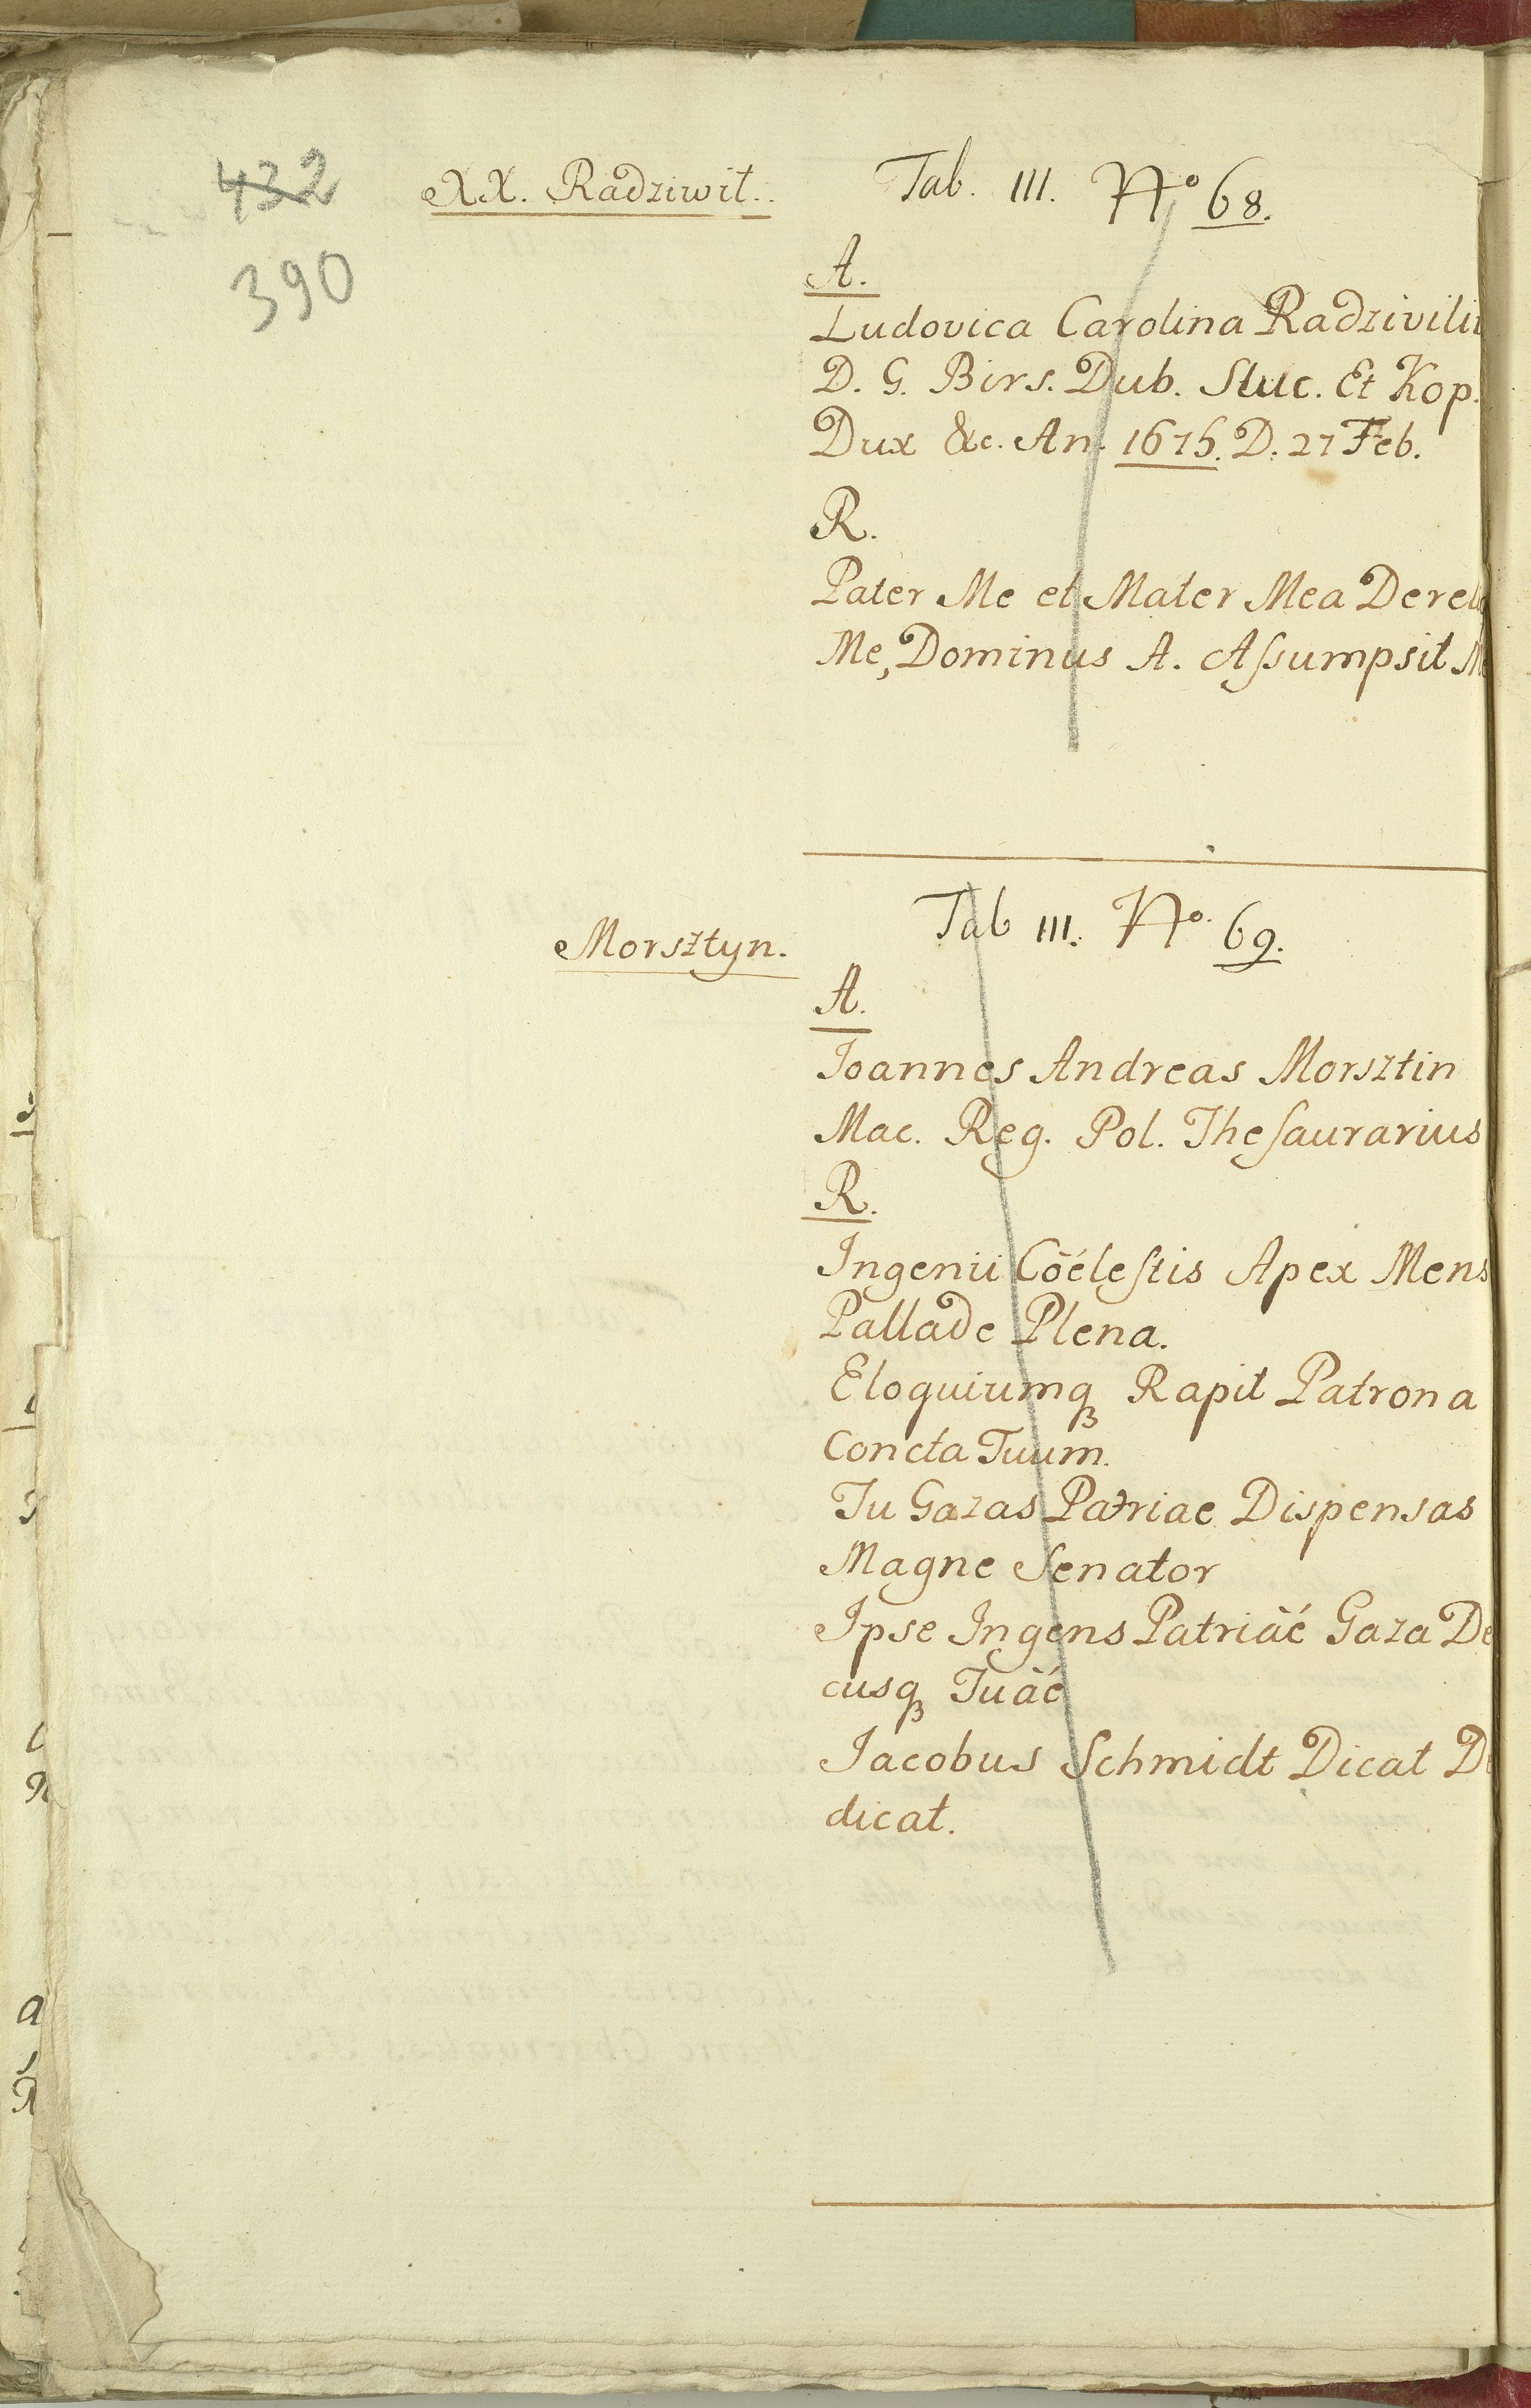 432
390
XX. Radziwił.
Tab. III. No 68.
A.
Ludovica Carolina Radzivili
D. G. Birs. Dub. Sluc. Et Kop.
Dux &c. An. 1675. D. 27 Feb.
R.
Pater Me et Mater Mea Dereli
Me, Dominus A. Aſsumpsit Me
Morsztyn.
Tab III. No. 69.
A.
Joannes Andreas Morsztin
Mac. Reg. Pol. Theſaurarius
R.
Ingenii Cöéleſtis Apex Mens
Pallade Plena.
Eloquiumqꝫ Rapit Patrona
Concta Tuum.
Tu Gazas Patriae Dispensas
Magne Senator
Ipse Ingens Patriäé Gaza De
cusqꝫ Tuäé
Jacobus Schmidt Dicat De
dicat.